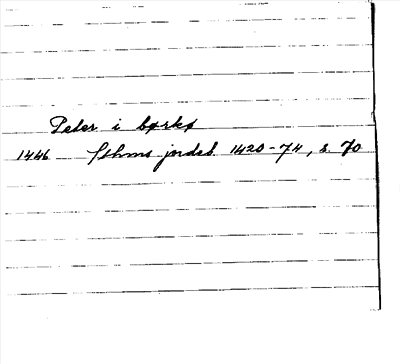 Peter i børkø
1446 Sthms jordeb. 1420-74, s. 70